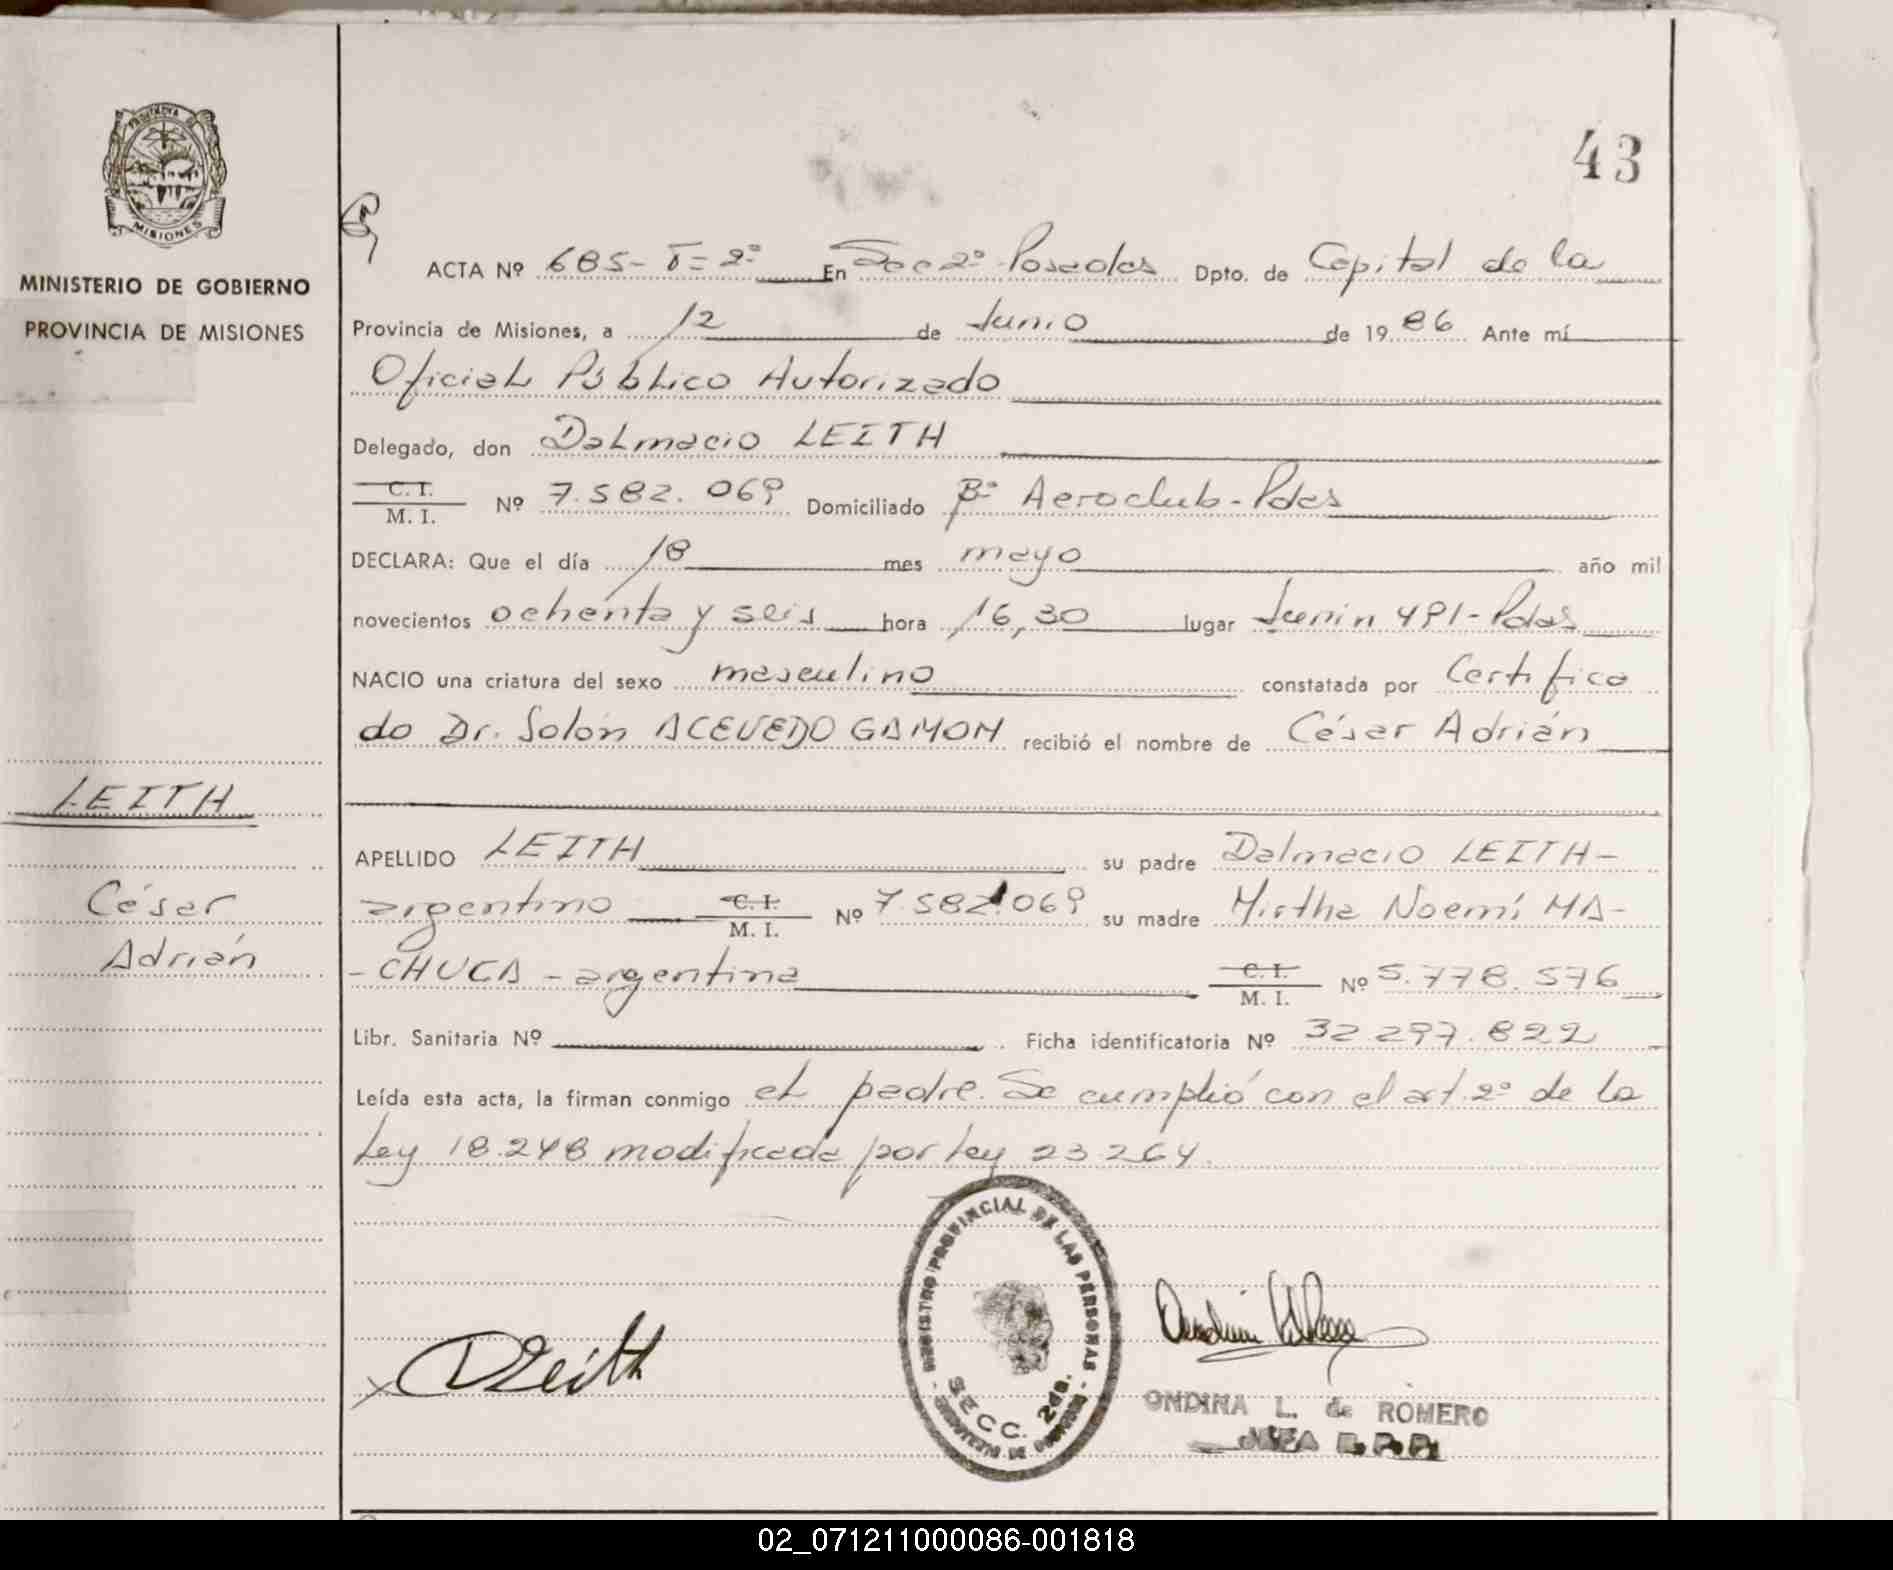 43
PROVINCIA DE
MISIONES
MINISTERIO DE GOBIERNO
PROVINCIA DE MISIONES
LEITH
César
Adrián
ACTA Nº 685- T= 2º En Sec 2º Posadas Dpto. de Capital de la
Provincia de Misiones, a 12 de Junio de 19 86 Ante mí
Oficial Público Autorizado
Delegado, don Dalmacio LEITH
C. I.
M. I. Nº 7.582.069 Domiciliado Bº Aeroclub-Pdas
DECLARA: Que el día 18 mes mayo año mil
novecientos ochenta y seis hora 16,30 lugar Junin 491-Pdas
NACIO una criatura del sexo masculino constatada por Certifica
do Dr. Solón ACEVEDO GAMON recibió el nombre de César Adrián
APELLIDO LEITH su padre Dalmacio LEITH-
argentino C. I.
M. I. Nº 7.582.069 su madre Mirtha Noemí MA-
-CHUCA - argentina C. I.
M. I. Nº 5.778.576
Libr. Sanitaria Nº Ficha identificatoria Nº 32.297.822
Leída esta acta, la firman conmigo el padre. Se cumplió con el art. 2º de la
Ley 18.248 modificada por Ley 23264.
REGISTRO PROVINCIAL DE LAS PERSONAS
SECC. 2da.
DLeith
ONDINA L. de ROMERO
02_071211000086-001818